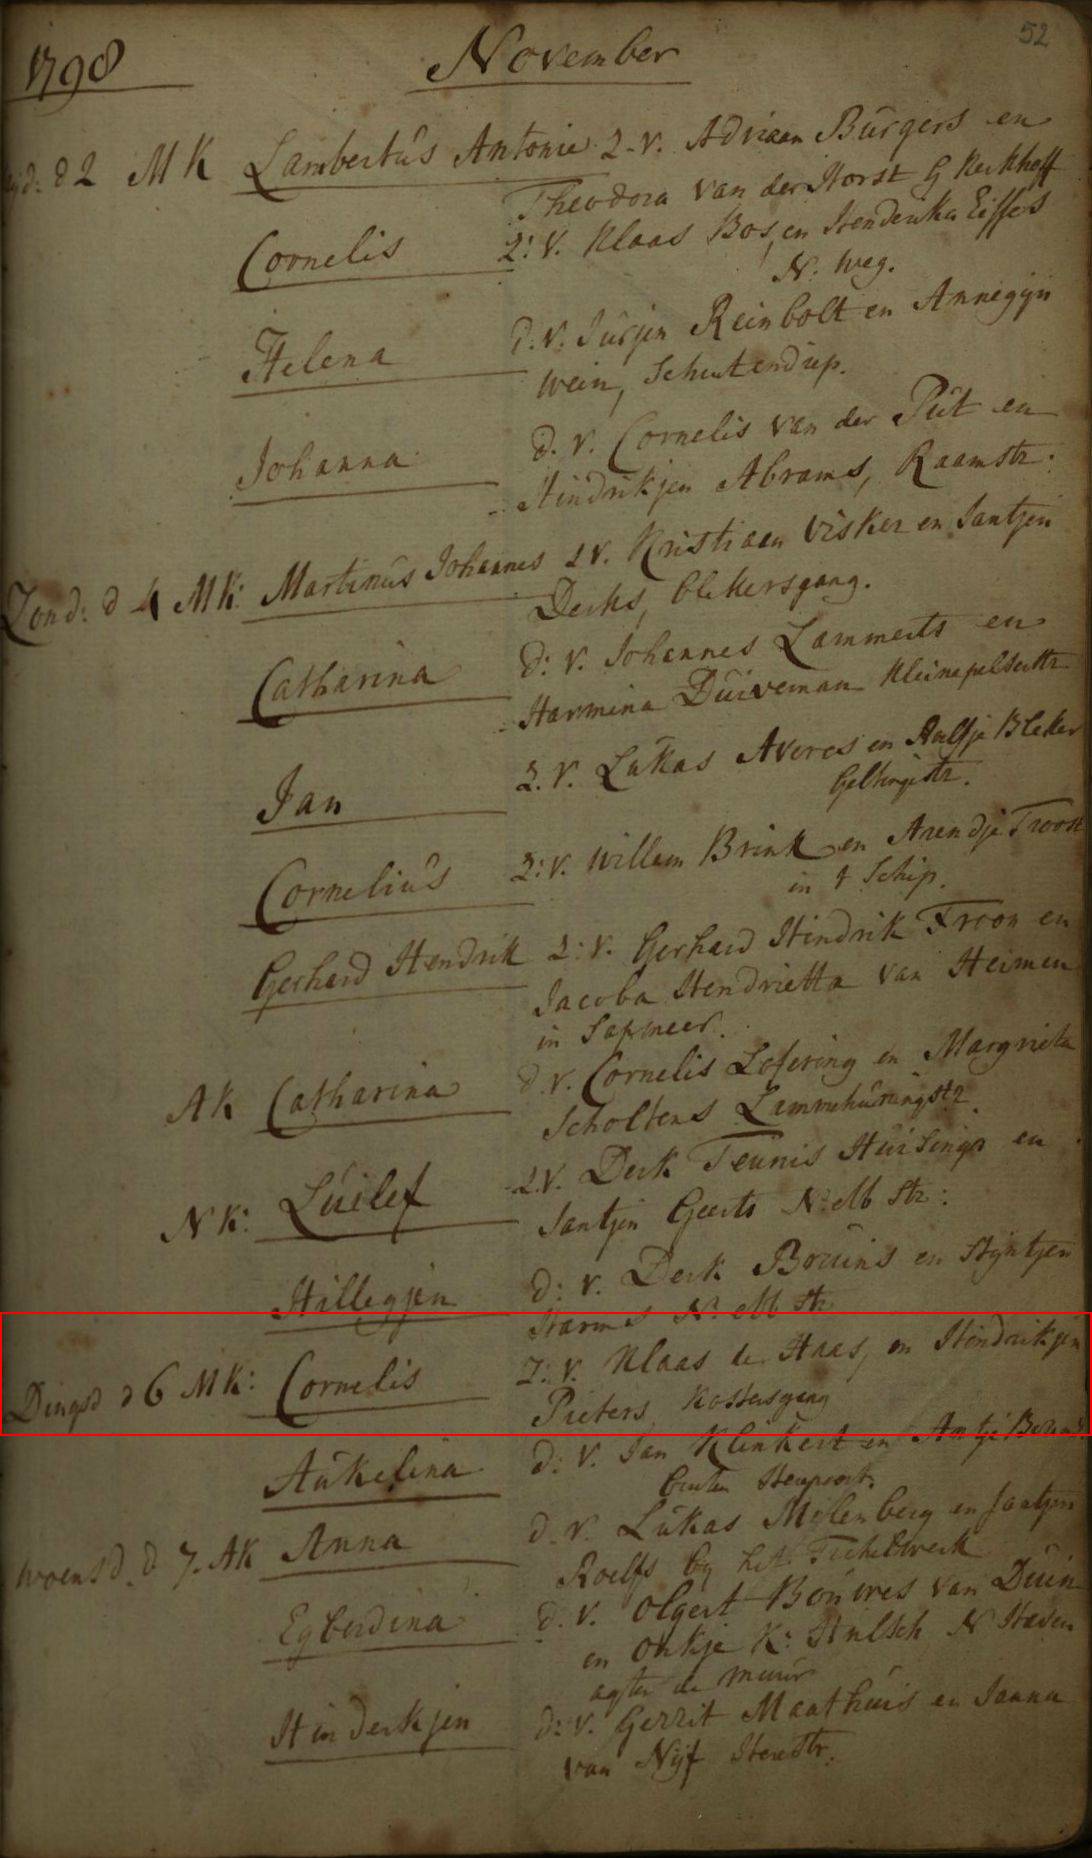 52
1798 November
d 2 MK Lambertus Antonie Z. v. Adriaan Burgers en
Theodora van der Horst G Kerkhoff
Cornelis Z: v. Klaas Bos, en Henderika Eissers
N. weg.
Helena d. v. Jurjen Reinbolt en Annegijn
wein, Schuitendiep.
Johanna d. v. Cornelis van der Put en
Hindrikjen Abrams, Raamstr:
Zond: d 4 MK: Martinus Johannes Z v. Kristiaan Visker en Jantjen
Derks, blekersgang.
Catharina d: v. Johannes Lammerts en
Harmina Duiveman Kleinepelsterstr
Jan Z. v. Lukas Averes en Aaltje Bleker
Gelkingestr.
Cornelius Z: v. Willem Brink en Arendje Troost
in 't Schip.
Gerhard Hendrik Z: v. Gerhard Hindrik Troon en
Jacoba Hendrietta van Heimen
in Sapmeer.
AK Catharina d. v. Cornelis Lofering en Margrieta
Scholtens Lammehuningstr.
NK: Luilef Z. v. Derk Teunis Huisinga en
Jantjen Geerts N. ebb str:
Hillegjen d: v. Derk Bruins en Stijntjen
Harms N. ebb str
Dingsd d 6 MK: Cornelis Z: v. Klaas de Haas, en Hindrikjen
Pieters Kostersgang
Aukelina d: v. Jan Klinkert en Antje
buiten Steenpoort.
woensd. d 7. AK Anna d. v. Lukas Molenberg en Jantjen
Roelfs by het Tichelwerk
Egberdina d. v. Olgert Bouwes van Duin
en Onkje K: Hulsch N Haven
agter de muur
Hinderkjen d: v. Gerrit Manthuis en Janna
van Nijf Heerestr.